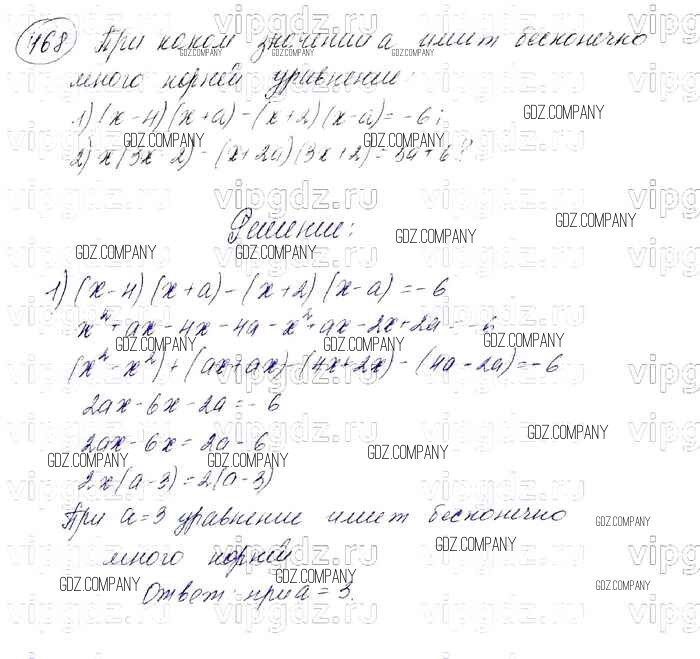 468 При каком значении а имеет бесконечно
много корней уравнение:
1) (x-4)(x+a)-(x+2)(x-a)=-6;
2) x(3x-2)-(x+2a)(3x+2)=5a+6?
Решение:
1) (x-4)(x+a)-(x+2)(x-a)=-6
x²+ax-4x-4a-x²+ax-2x+2a=-6
(x²-x²)+(ax+ax)-(4x+2x)-(4a-2a)=-6
2ax-6x-2a=-6
2ax-6x=2a-6
2x(a-3)=2(a-3)
При a=3 уравнение имеет бесконечно
много корней
Ответ: при a=3.
GDZ.COMPANY
vipgdz.ru